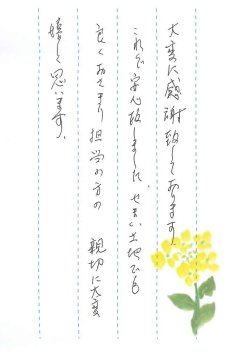 大変に感謝致しております。
これで安心致しました。せまい土地でも
良くあさまり担当の方の 親切に大変
嬉しく思います。